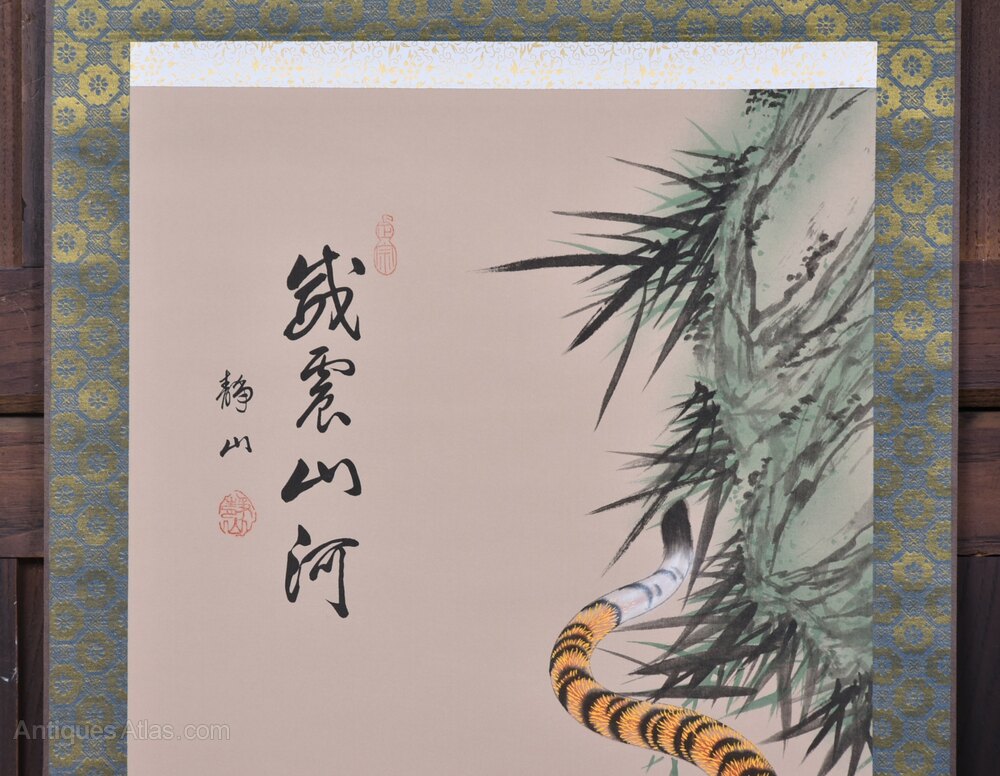 威震山河
靜山
Antiques Atlas.com